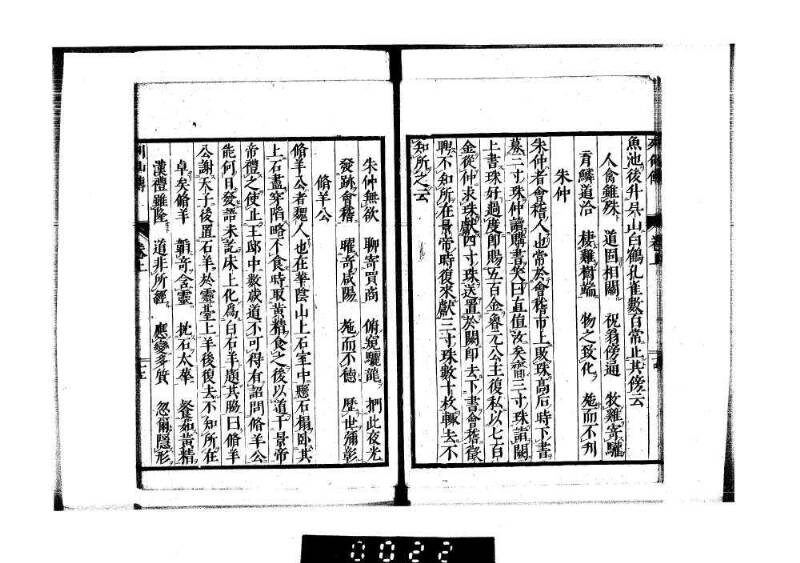 魚池後升吳山白鶴孔雀數百常止其傍云
人禽雖殊 道固相關 祝翁傍通 牧雞寄驩
育鱗道洽 棲雞樹端 物之致化 施而不刊
朱仲
朱仲者會稽人也常於會稽市上販珠高后時下書
募三寸珠仲讀購書笑曰直值汝矣齎三寸珠詣闕
上書珠好過度即賜五百金魯元公主復私以七百
金從仲求珠仲獻四寸珠送置於闕即去下書會稽徵
聘不知所在景帝時復來獻三寸珠數十枚輒去不
知所之云
朱仲無欲 聊寄賈商 俯窺驪龍 捫此夜光
發跡會稽 曜奇咸陽 施而不德 歷世彌彰
脩羊公
脩羊公者魏人也在華陰山上石室中懸石榻臥其
上石盡穿陷略不食時取黃精食之後以道干景帝
帝禮之使止王邸中數歲道不可得有詔問脩羊公
能何日發語未訖床上化為白石羊題其脇曰脩羊
公謝天子後置石羊於靈臺上羊後復去不知所在
卓矣脩羊 韜奇含靈 枕石太華 餐茹黃精
漢禮雖隆 道非所經 應變多質 忽爾隱形
0022